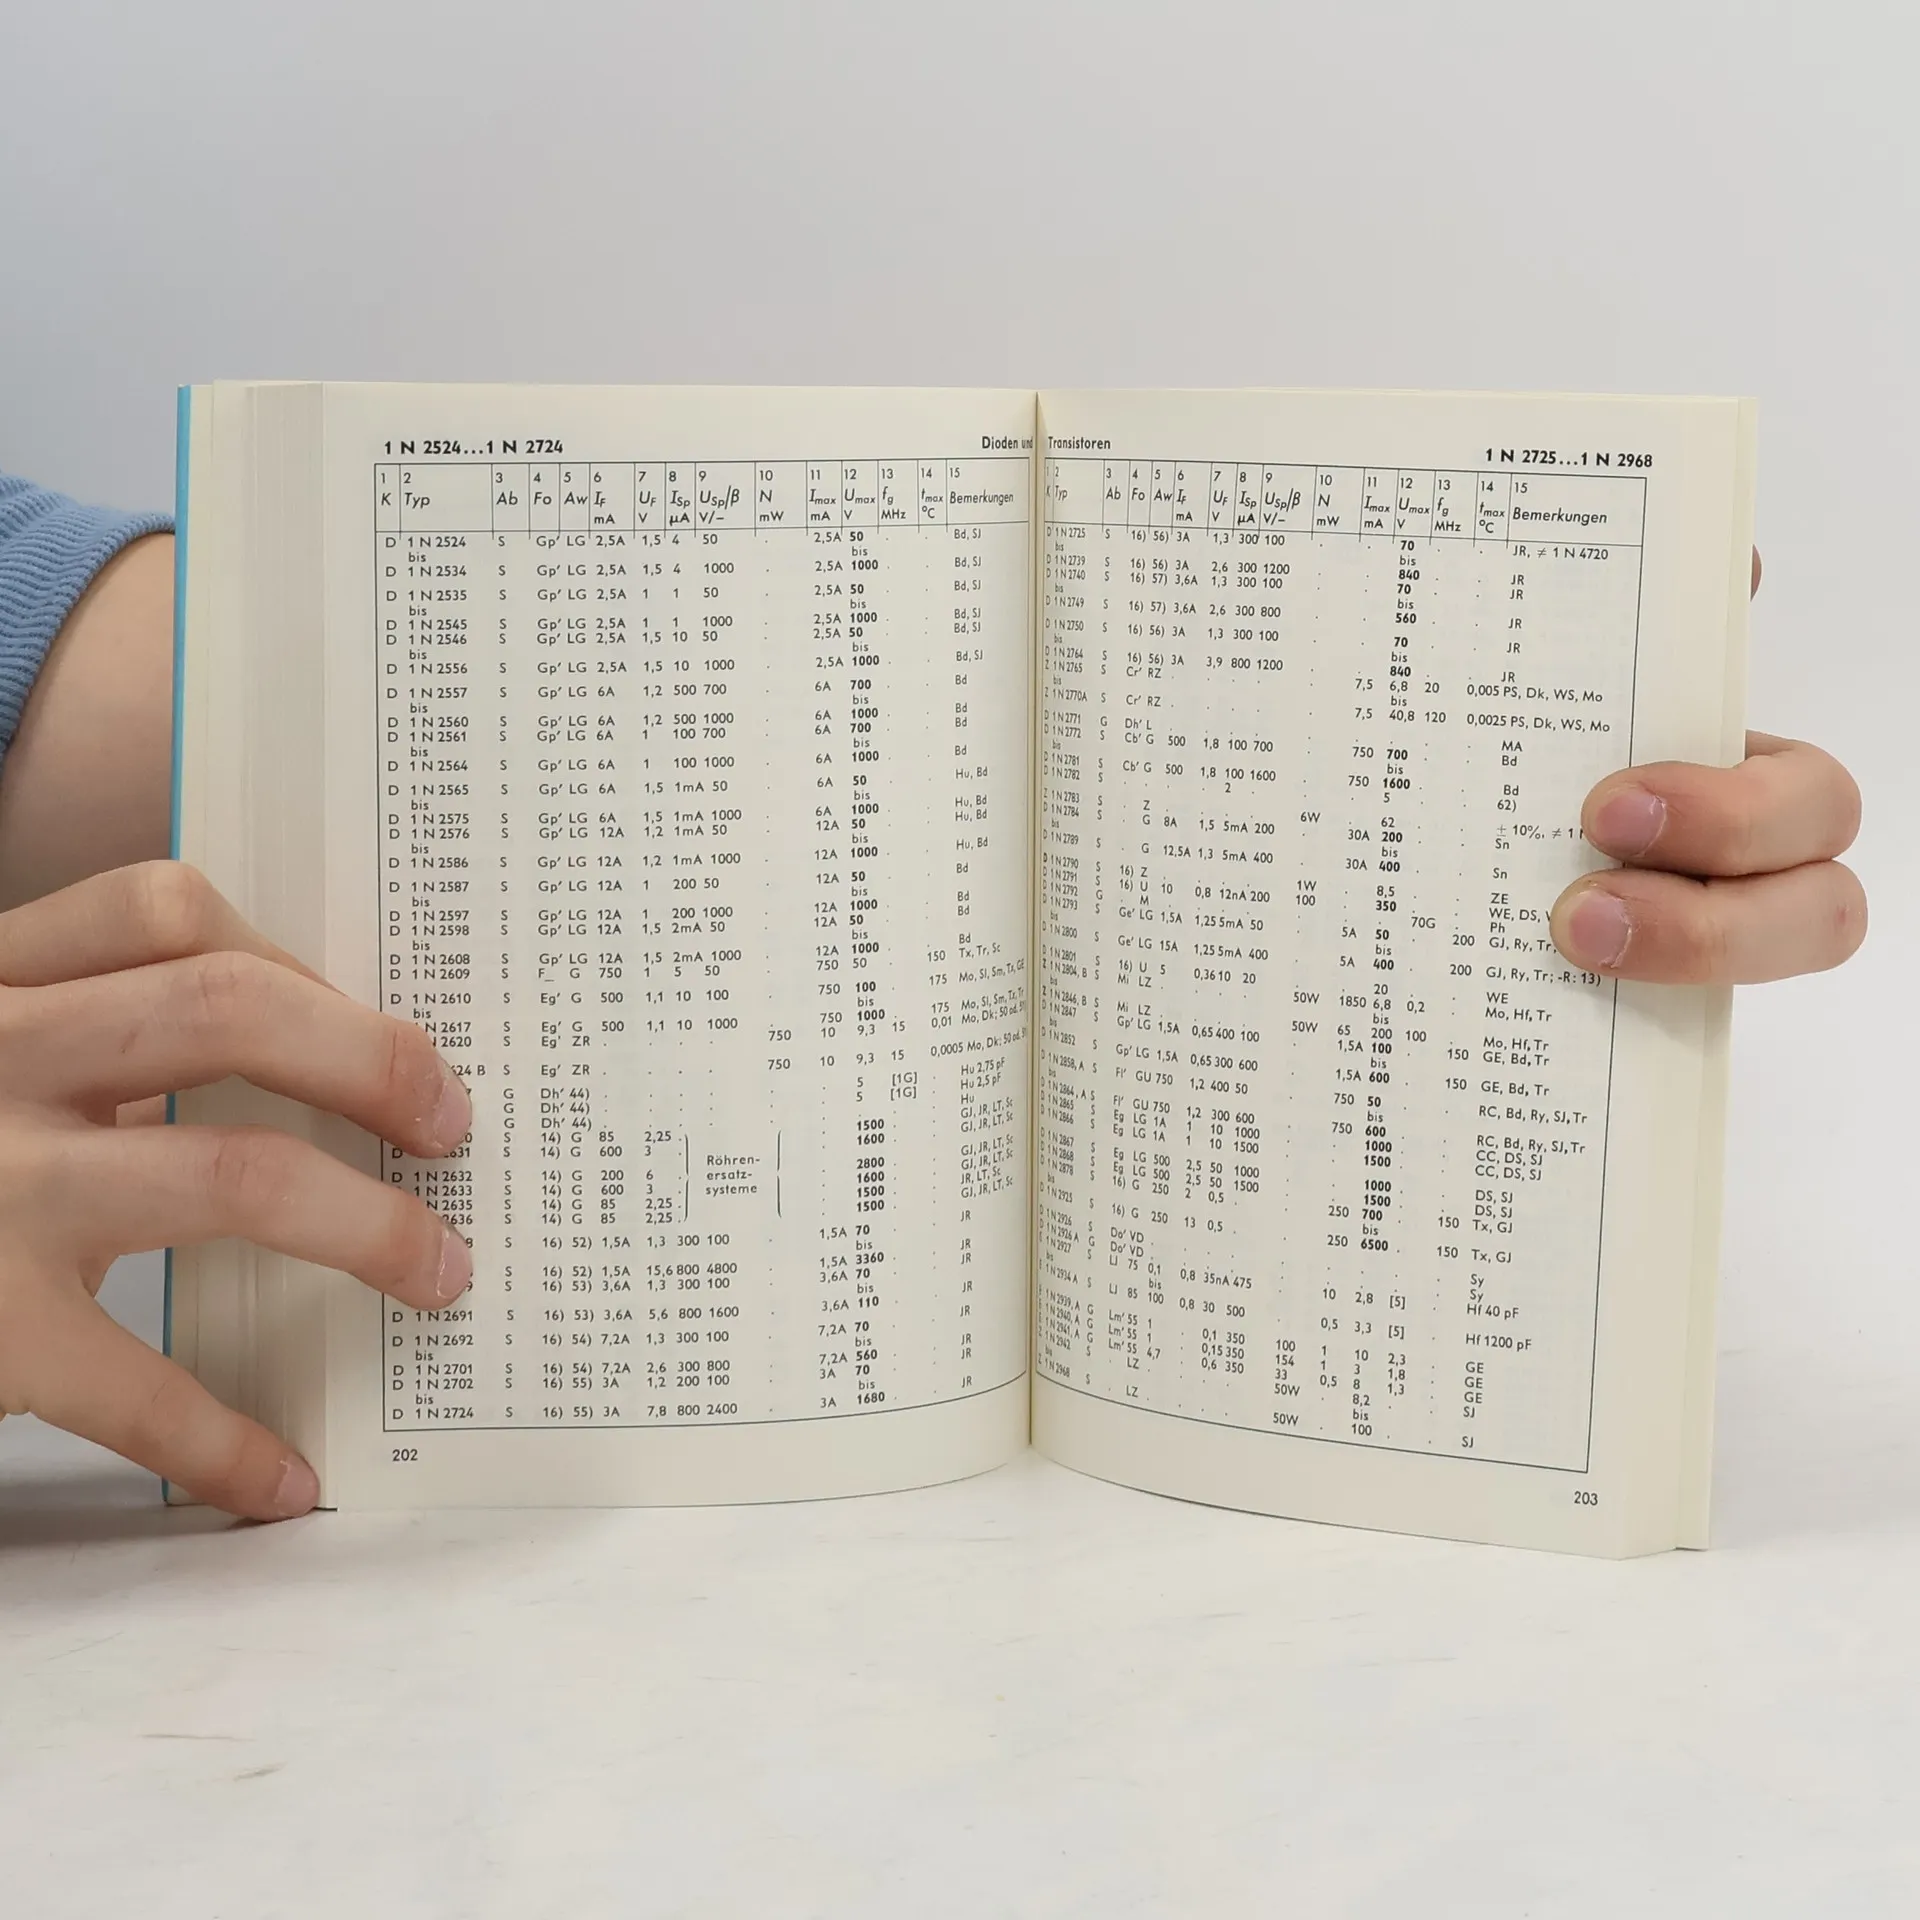 1 N 2524...1 N 2724
Dioden und
1 2 3 4 5 6 7 8 9 10 11 12 13 14 15
K Typ Ab Fo Aw IF UF ISp USp/β N Imax Umax fg tmax Bemerkungen
mA V µA V/− mW mA V MHz °C
D 1 N 2524 S Gp' LG 2,5A 1,5 4 50 . 2,5A 50 . . Bd, SJ
bis bis
D 1 N 2534 S Gp' LG 2,5A 1,5 4 1000 . 2,5A 1000 . . Bd, SJ
D 1 N 2535 S Gp' LG 2,5A 1 1 50 . 2,5A 50 . . Bd, SJ
bis bis
D 1 N 2545 S Gp' LG 2,5A 1 1 1000 . 2,5A 1000 . . Bd, SJ
D 1 N 2546 S Gp' LG 2,5A 1,5 10 50 . 2,5A 50 . . Bd, SJ
bis bis
D 1 N 2556 S Gp' LG 2,5A 1,5 10 1000 . 2,5A 1000 . . Bd, SJ
D 1 N 2557 S Gp' LG 6A 1,2 500 700 . 6A 700 . . Bd
bis bis
D 1 N 2560 S Gp' LG 6A 1,2 500 1000 . 6A 1000 . . Bd
D 1 N 2561 S Gp' LG 6A 1 100 700 . 6A 700 . . Bd
bis bis
D 1 N 2564 S Gp' LG 6A 1 100 1000 . 6A 1000 . . Bd
D 1 N 2565 S Gp' LG 6A 1,5 1mA 50 . 6A 50 . . Hu, Bd
bis bis
D 1 N 2575 S Gp' LG 6A 1,5 1mA 1000 . 6A 1000 . . Hu, Bd
D 1 N 2576 S Gp' LG 12A 1,2 1mA 50 . 12A 50 . . Hu, Bd
bis bis
D 1 N 2586 S Gp' LG 12A 1,2 1mA 1000 . 12A 1000 . . Hu, Bd
D 1 N 2587 S Gp' LG 12A 1 200 50 . 12A 50 . . Bd
bis bis
D 1 N 2597 S Gp' LG 12A 1 200 1000 . 12A 1000 . . Bd
D 1 N 2598 S Gp' LG 12A 1,5 2mA 50 . 12A 50 . . Bd
bis bis
D 1 N 2608 S Gp' LG 12A 1,5 2mA 1000 . 12A 1000 . . Bd
D 1 N 2609 S F_ G 750 1 5 50 . 750 50 . 150 Tx, Tr, Sc
D 1 N 2610 S Eg' G 500 1,1 10 100 . 750 100 . 175 Mo, SJ, Sm, Tx, GE
bis bis
N 2617 S Eg' G 500 1,1 10 1000 . 750 1000 . 175 Mo, SJ, Sm, Tx, Tr
2620 S Eg' ZR . . . . 750 10 9,3 15 0,01 Mo, Dk; 50 od.
24 B S Eg' ZR . . . . 750 10 9,3 15 0,0005 Mo, Dk; 50 od.
G Dh' 44) . . . . . . 5 [1G] . Hu 2,75 pF
G Dh' 44) . . . . . . 5 [1G] . Hu 2,5 pF
G Dh' 44) . . . . . . . . . Hu
S 14) G 85 2,25 . 1500 GJ, JR, LT, Sc
D 2631 S 14) G 600 3 . Röhren- 1600 GJ, JR, LT, Sc
D 1 N 2632 S 14) G 200 6 . ersatz- 2800 GJ, JR, LT, Sc
1 N 2633 S 14) G 600 3 . systeme 1600 GJ, JR, LT, Sc
2635 S 14) G 85 2,25 . 1500 JR, LT, Sc
2636 S 14) G 85 2,25 . 1500 GJ, JR, LT, Sc
8 S 16) 52) 1,5A 1,3 300 100 . 1,5A 70 . . JR
bis
S 16) 52) 1,5A 15,6 800 4800 . 1,5A 3360 . . JR
9 S 16) 53) 3,6A 1,3 300 100 . 3,6A 70 . . JR
bis
D 1 N 2691 S 16) 53) 3,6A 5,6 800 1600 . 3,6A 110 . . JR
D 1 N 2692 S 16) 54) 7,2A 1,3 300 100 . 7,2A 70 . . JR
bis bis
D 1 N 2701 S 16) 54) 7,2A 2,6 300 800 . 7,2A 560 . . JR
D 1 N 2702 S 16) 55) 3A 1,2 200 100 . 3A 70 . . JR
bis bis
D 1 N 2724 S 16) 55) 3A 7,8 800 2400 . 3A 1680 . . JR
202
Transistoren
1 N 2725...1 N 2968
1 2 3 4 5 6 7 8 9 10 11 12 13 14 15
K Typ Ab Fo Aw IF UF ISp USp/β N Imax Umax fg tmax Bemerkungen
mA V µA V/− mW mA V MHz °C
D 1 N 2725 S 16) 56) 3A 1,3 300 100 . . 70 . . JR, ≠ 1 N 4720
bis bis
D 1 N 2739 S 16) 56) 3A 2,6 300 1200 . . 840 . . JR
D 1 N 2740 S 16) 57) 3,6A 1,3 300 100 . . 70 . . JR
bis bis
D 1 N 2749 S 16) 57) 3,6A 2,6 300 800 . . 560 . . JR
D 1 N 2750 S 16) 56) 3A 1,3 300 100 . . 70 . . JR
bis bis
D 1 N 2764 S 16) 56) 3A 3,9 800 1200 . . 840 . . JR
Z 1 N 2765 S Cr' RZ . . . . . 7,5 6,8 20 0,005 PS, Dk, WS, Mo
bis bis
Z 1 N 2770A S Cr' RZ . . . . . 7,5 40,8 120 0,0025 PS, Dk, WS, Mo
D 1 N 2771 G Dh' L . . . . . . . . . MA
D 1 N 2772 S Cb' G 500 1,8 100 700 . 750 700 . . Bd
bis bis
D 1 N 2781 S Cb' G 500 1,8 100 1600 . 750 1600 . . Bd
D 1 N 2782 S . . . . 2 . . 5 . . 62)
Z 1 N 2783 S . Z . . . . 6W . 62 . . ± 10%, ≠ 1 N
D 1 N 2784 S . G 8A 1,5 5mA 200 . 30A 200 . . Sn
bis bis
D 1 N 2789 S . G 12,5A 1,3 5mA 400 . 30A 400 . . Sn
D 1 N 2790 S 16) Z . . . . 1W . 8,5 . . ZE
D 1 N 2791 S 16) U 10 0,8 12nA 200 100 . 350 . . WE, DS,
D 1 N 2792 G . M . . . . . . . 70G . Ph
D 1 N 2793 S Ge' LG 1,5A 1,25 5mA 50 . 5A 50 . 200 GJ, Ry, Tr,
bis bis
D 1 N 2800 S Ge' LG 15A 1,25 5mA 400 . 5A 400 . 200 GJ, Ry, Tr; -R: 13)
D 1 N 2801 S 16) U 5 0,36 10 20 . . 20 . . WE
Z 1 N 2804, B S Mi LZ . . . . 50W 1850 6,8 0,2 . Mo, Hf, Tr
bis bis
Z 1 N 2846, B S Mi LZ . . . . 50W 65 200 100 . Mo, Hf, Tr
D 1 N 2847 S Gp' LG 1,5A 0,65 400 100 . 1,5A 100 . 150 GE, Bd, Tr
bis bis
D 1 N 2852 S Gp' LG 1,5A 0,65 300 600 . 1,5A 600 . 150 GE, Bd, Tr
D 1 N 2858, A S Fl' GU 750 1,2 400 50 . 750 50 . . RC, Bd, Ry, SJ, Tr
bis bis
D 1 N 2864, A S Fl' GU 750 1,2 300 600 . 750 600 . . RC, Bd, Ry, SJ, Tr
D 1 N 2865 S Eg LG 1A 1 10 1000 . . 1000 . . CC, DS, SJ
D 1 N 2866 S Eg LG 1A 1 10 1500 . . 1500 . . CC, DS, SJ
D 1 N 2867 S Eg LG 500 2,5 50 1000 . . 1000 . . DS, SJ
D 1 N 2868 S Eg LG 500 2,5 50 1500 . . 1500 . . DS, SJ
D 1 N 2878 S 16) G 250 2 0,5 . . 250 700 . 150 Tx, GJ
bis bis
D 1 N 2925 S 16) G 250 13 0,5 . . 250 6500 . 150 Tx, GJ
D 1 N 2926 S Do' VD . . . . . . . . . Sy
D 1 N 2926 A G Do' VD . . . . . . . . . Sy
1 N 2927 S LJ 75 0,1 0,8 35nA 475 . 10 2,8 [5] . Hf 40 pF
bis bis
1 N 2934 A S LJ 85 100 0,8 30 500 . 0,5 3,3 [5] . Hf 1200 pF
1 N 2939, A G Lm' 55 1 . 0,1 350 100 1 10 2,3 . GE
1 N 2940, A G Lm' 55 1 . 0,15 350 154 1 3 1,8 . GE
1 N 2941, A G Lm' 55 4,7 . 0,6 350 33 0,5 8 1,3 . GE
Z 1 N 2942 S . LZ . . . . 50W . 8,2 . . SJ
bis bis
Z 1 N 2968 S . LZ . . . . 50W . 100 . . SJ
203